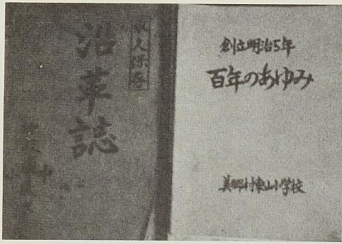 永久保存
沿革誌
創立明治5年
百年のあゆみ
美郷村東山小学校